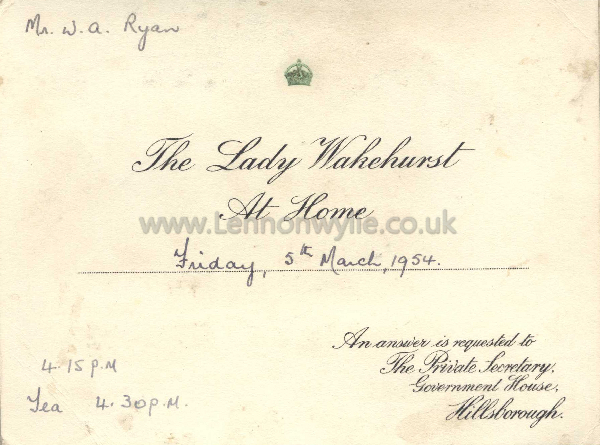 Mr. W. A. Ryan
The Lady Wakehurst
At Home
www.Lennonwylie.co.uk
Friday, 5th March, 1954.
An answer is requested to
The Private Secretary,
Government House,
Hillsborough.
4.15 P.M
Tea 4.30 P.M.